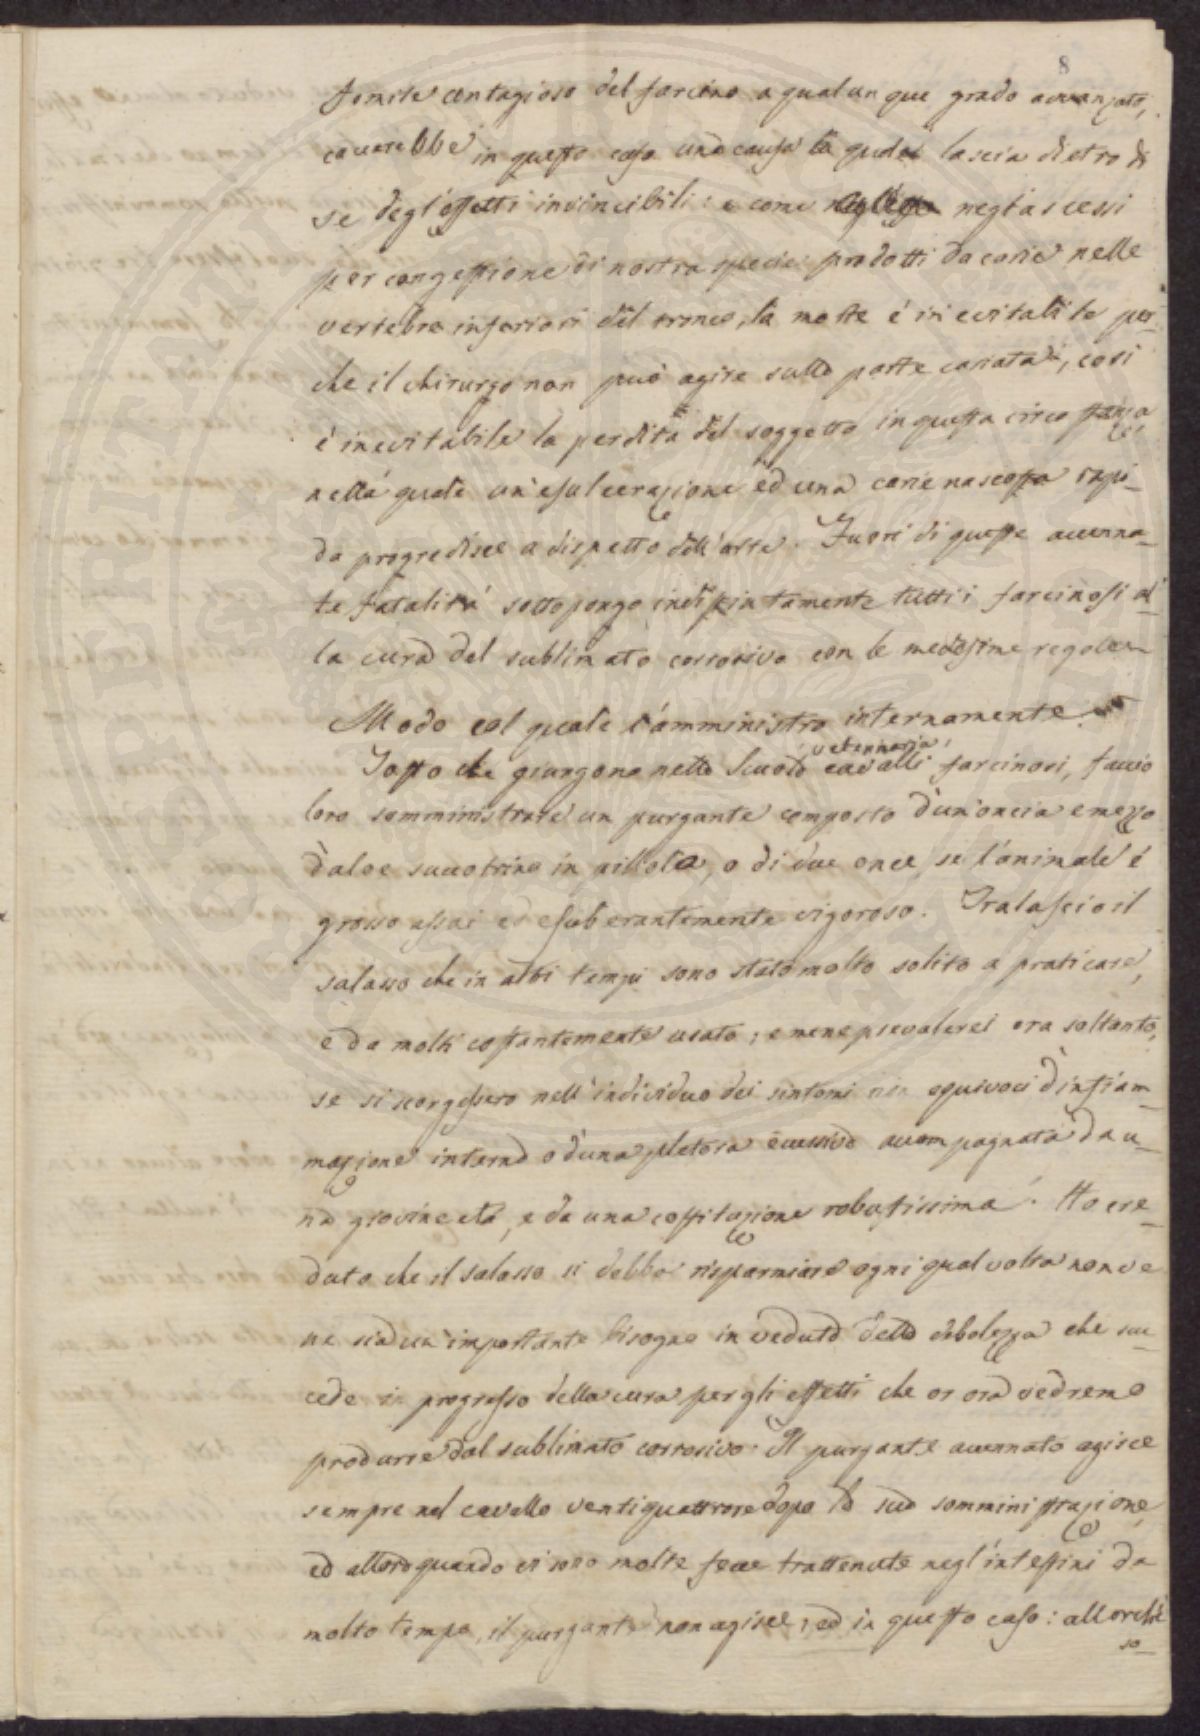 8
fomite contagioso del farcino a qualunque grado avvanzato,
caverebbe in questo caso una causa la quale lascia dietro di
se degl'effetti invincibili: e come negl'ascessi
per congestione di nostra specie prodotti da carie nelle
vertebre inferiori del tronco, la morte é inevitabile per-
che il chirurgo non può agire sulla parte cariata, così
é inevitabile la perdita del soggetto in questa circostanza
nella quale un'esulcerazione ed una carie nascosta rapi-
da progredisce a dispetto dell'arte. Fuori di queste accenna-
te fatalità sottopongo indistintamente tutti i farcinosi al-
la cura del sublimato corrosivo con le medesime regole
Modo col quale l'amministro internamente.
Tosto che giungono nella Scuola veterinaria cavalli farcinosi, faccio
loro somministrare un purgante composto d'un'oncia e mezzo
d'aloe succotrino in pillola, o di due once se l'animale é
grosso assai ed esuberantemente vigoroso. Tralascio il
salasso che in altri tempi sono stato molto solito a praticare,
e da molti costantemente usato; e mene prevalerei ora soltanto,
se si scorgessero nell'individuo dei sintomi non equivoci d'infiam-
mazione interna o d'una pletora eccessiva accompagnata da u-
na giovine età, e da una costituzione robustissima. Ho cre-
duto che il salasso si debba risparmiare ogni qual volta non ve
ne sia un importante bisogno in veduta della debolezza che suc-
cede in progresso della cura per gli effetti che or ora vedremo
produrre dal sublimato corrosivo. Il purgante accennato agisce
sempre nel cavallo ventiquattrore dopo la sua somministrazione,
ed alloraquando vi sono molte fecce trattenute negl'intestini da
molto tempo, il purgante non agisce; ed in questo caso: allorché
so-